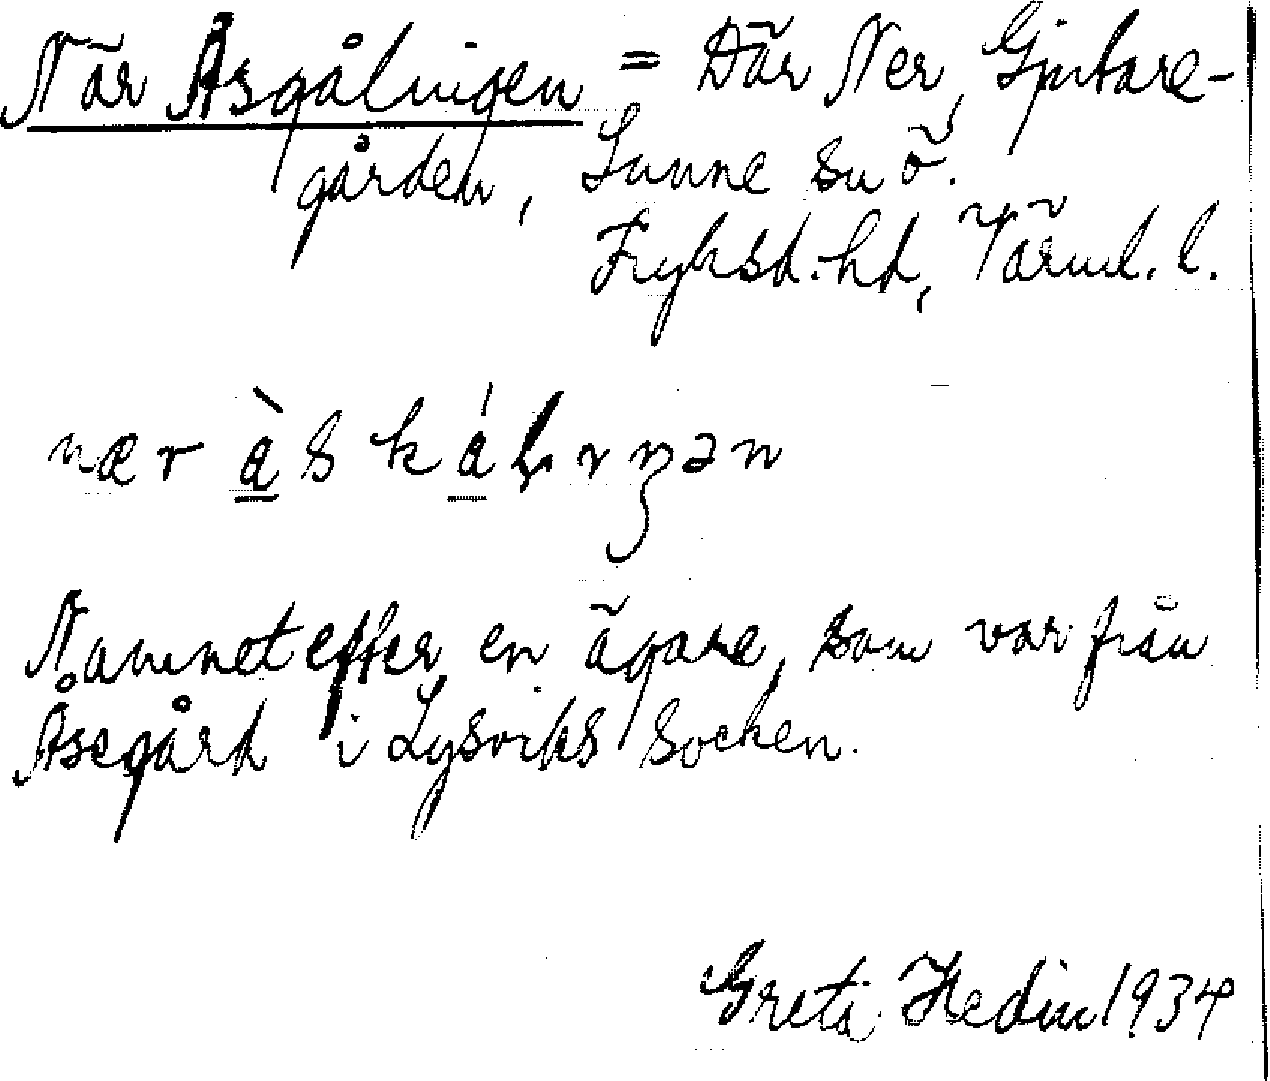 När Åsgålningen = Där Ner, Gjutare-
gården, Sunne sn ö.
Fryksd. hd, Värml. l.
nær à̱skáḻɩŋən
Namnet efter en ägare, som var från
Åsegård i Lysviks socken.
Greta Hedin 1934